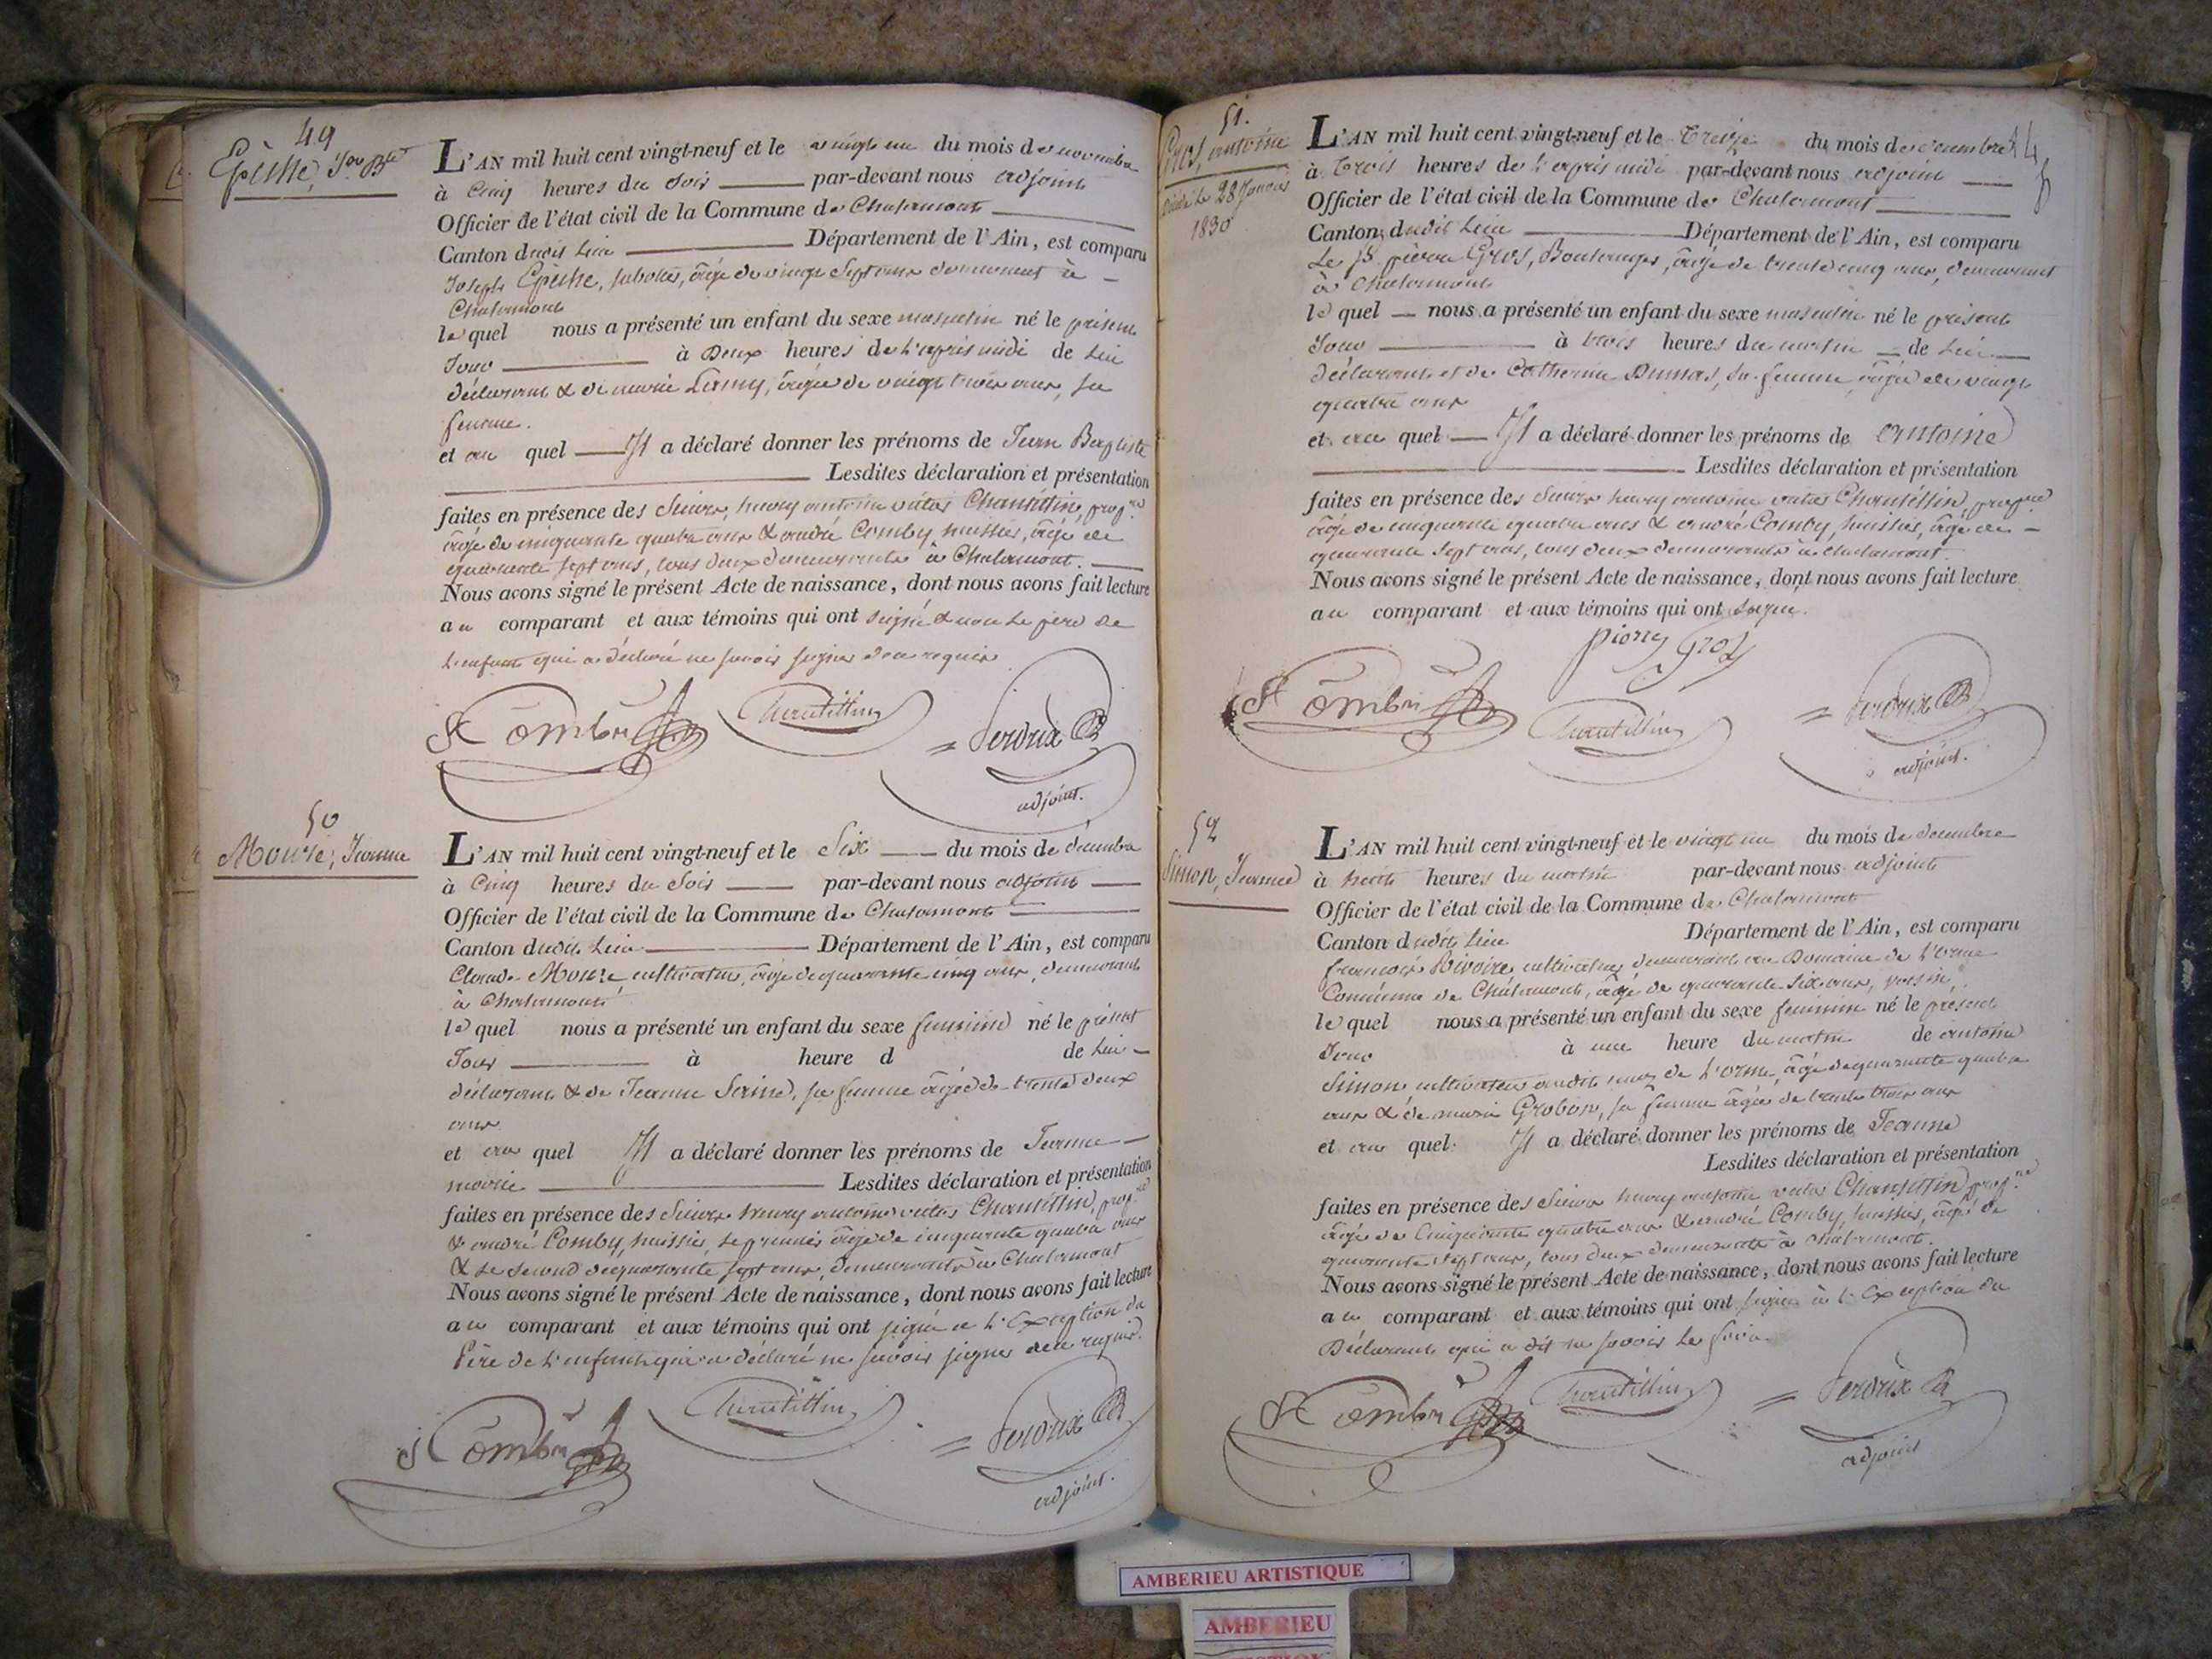 49
Epeisse, Jean Bte
L'AN mil huit cent vingt-neuf et le vingt un du mois de novembre
à Cinq heures du Soir par-devant nous adjoint
Officier de l'état civil de la Commune de Chalamont
Canton dudit Lieu Département de l'Ain, est comparu
Joseph, âgé de vingt Sept ans demeurant à
Chalamont
le quel nous a présenté un enfant du sexe masculin né le présent
Jour à Deux heures de l'après midi de Lui
déclarant & de marie Lamy, âgée de vingt trois ans, sa
femme.
et au quel Il a déclaré donner les prénoms de Jean Baptiste
Lesdites déclaration et présentation
faites en présence des Sieurs, henry antoine vital Chantellin, propre
âgé de cinquante quatre ans & andré Comby, huissier, âgé de
quarante sept ans, tous deux demeurants à Chalamont.
Nous avons signé le présent Acte de naissance, dont nous avons fait lecture
au comparant et aux témoins qui ont signé & non le père de
l'enfant qui a déclaré ne savoir signer de ce requis
Comby Chantellin Perdrix
adjoint.
50
Mouze, Jeanne
L'AN mil huit cent vingt-neuf et le Six du mois de décembre
à Cinq heures du Soir par-devant nous adjoint
Officier de l'état civil de la Commune de Chalamont
Canton dudit Lieu Département de l'Ain, est comparu
Claude Mouze, cultivateur, âgé de quarante cinq ans, demeurant
à Chalamont
le quel nous a présenté un enfant du sexe féminin né le présent
Jour à heure d de Lui
déclarant & de Jeanne, sa femme âgée de trente deux
ans
et au quel Il a déclaré donner les prénoms de Jeanne
marie Lesdites déclaration et présentation
faites en présence des Sieurs henry antoine vital Chantellin, propre
& andré Comby, huissier, le premier âgé de cinquante quatre ans
& le second de quarante sept ans, demeurants à Chalamont
Nous avons signé le présent Acte de naissance, dont nous avons fait lecture
au comparant et aux témoins qui ont signé à l'Exception du
Père de l'enfant qui a déclaré ne savoir signer de ce requis.
Comby Chantellin Perdrix
adjoint.
51.
Gros, antoine
décédé le 28 Janvier
1830
L'AN mil huit cent vingt-neuf et le Treize du mois de décembre
à Trois heures de l'après midi par-devant nous adjoint
Officier de l'état civil de la Commune de Chalamont
Canton dudit Lieu Département de l'Ain, est comparu
Le Sr pierre Gros, Boulanger, âgé de trente cinq ans, demeurant
à Chalamont
le quel nous a présenté un enfant du sexe masculin né le présent
Jour à trois heures du matin de Lui
déclarant et de Catherine Dumas, sa femme, âgée de vingt
quatre ans
et au quel Il a déclaré donner les prénoms de antoine
Lesdites déclaration et présentation
faites en présence des Sieurs henry antoine vital Chantellin, propre
âgé de cinquante quatre ans & andré Comby, huissier, âgé de
quarante sept ans, tous deux demeurants à Chalamont.
Nous avons signé le présent Acte de naissance, dont nous avons fait lecture
au comparant et aux témoins qui ont signé.
pierre Gros
Comby Chantellin Perdrix
adjoint.
52
Simon, Jeanne
L'AN mil huit cent vingt-neuf et le vingt un du mois de décembre
à huit heures du matin par-devant nous adjoint
Officier de l'état civil de la Commune de Chalamont
Canton dudit Lieu Département de l'Ain, est comparu
françois Rivoire cultivateur demeurant au Domaine de l'orme
Commune de Chalamont, âgé de quarante Six ans, voisin,
le quel nous a présenté un enfant du sexe féminin né le présent
Jour à une heure du matin de antoine
Simon cultivateur audit de l'orme, âgé de quarante quatre
ans & de marie Grobon, sa femme âgée de trente trois ans
et au quel Il a déclaré donner les prénoms de Jeanne
Lesdites déclaration et présentation
faites en présence des Sieurs henry antoine vital Chantellin propre
âgé de Cinquante quatre ans & andré Comby, huissier, âgé de
quarante Sept ans, tous deux demeurants à Chalamont.
Nous avons signé le présent Acte de naissance, dont nous avons fait lecture
au comparant et aux témoins qui ont signé à l'Exception du
Déclarant qui a dit ne savoir le faire
Comby Chantellin Perdrix
adjoint
AMBERIEU ARTISTIQUE
AMBERIEU